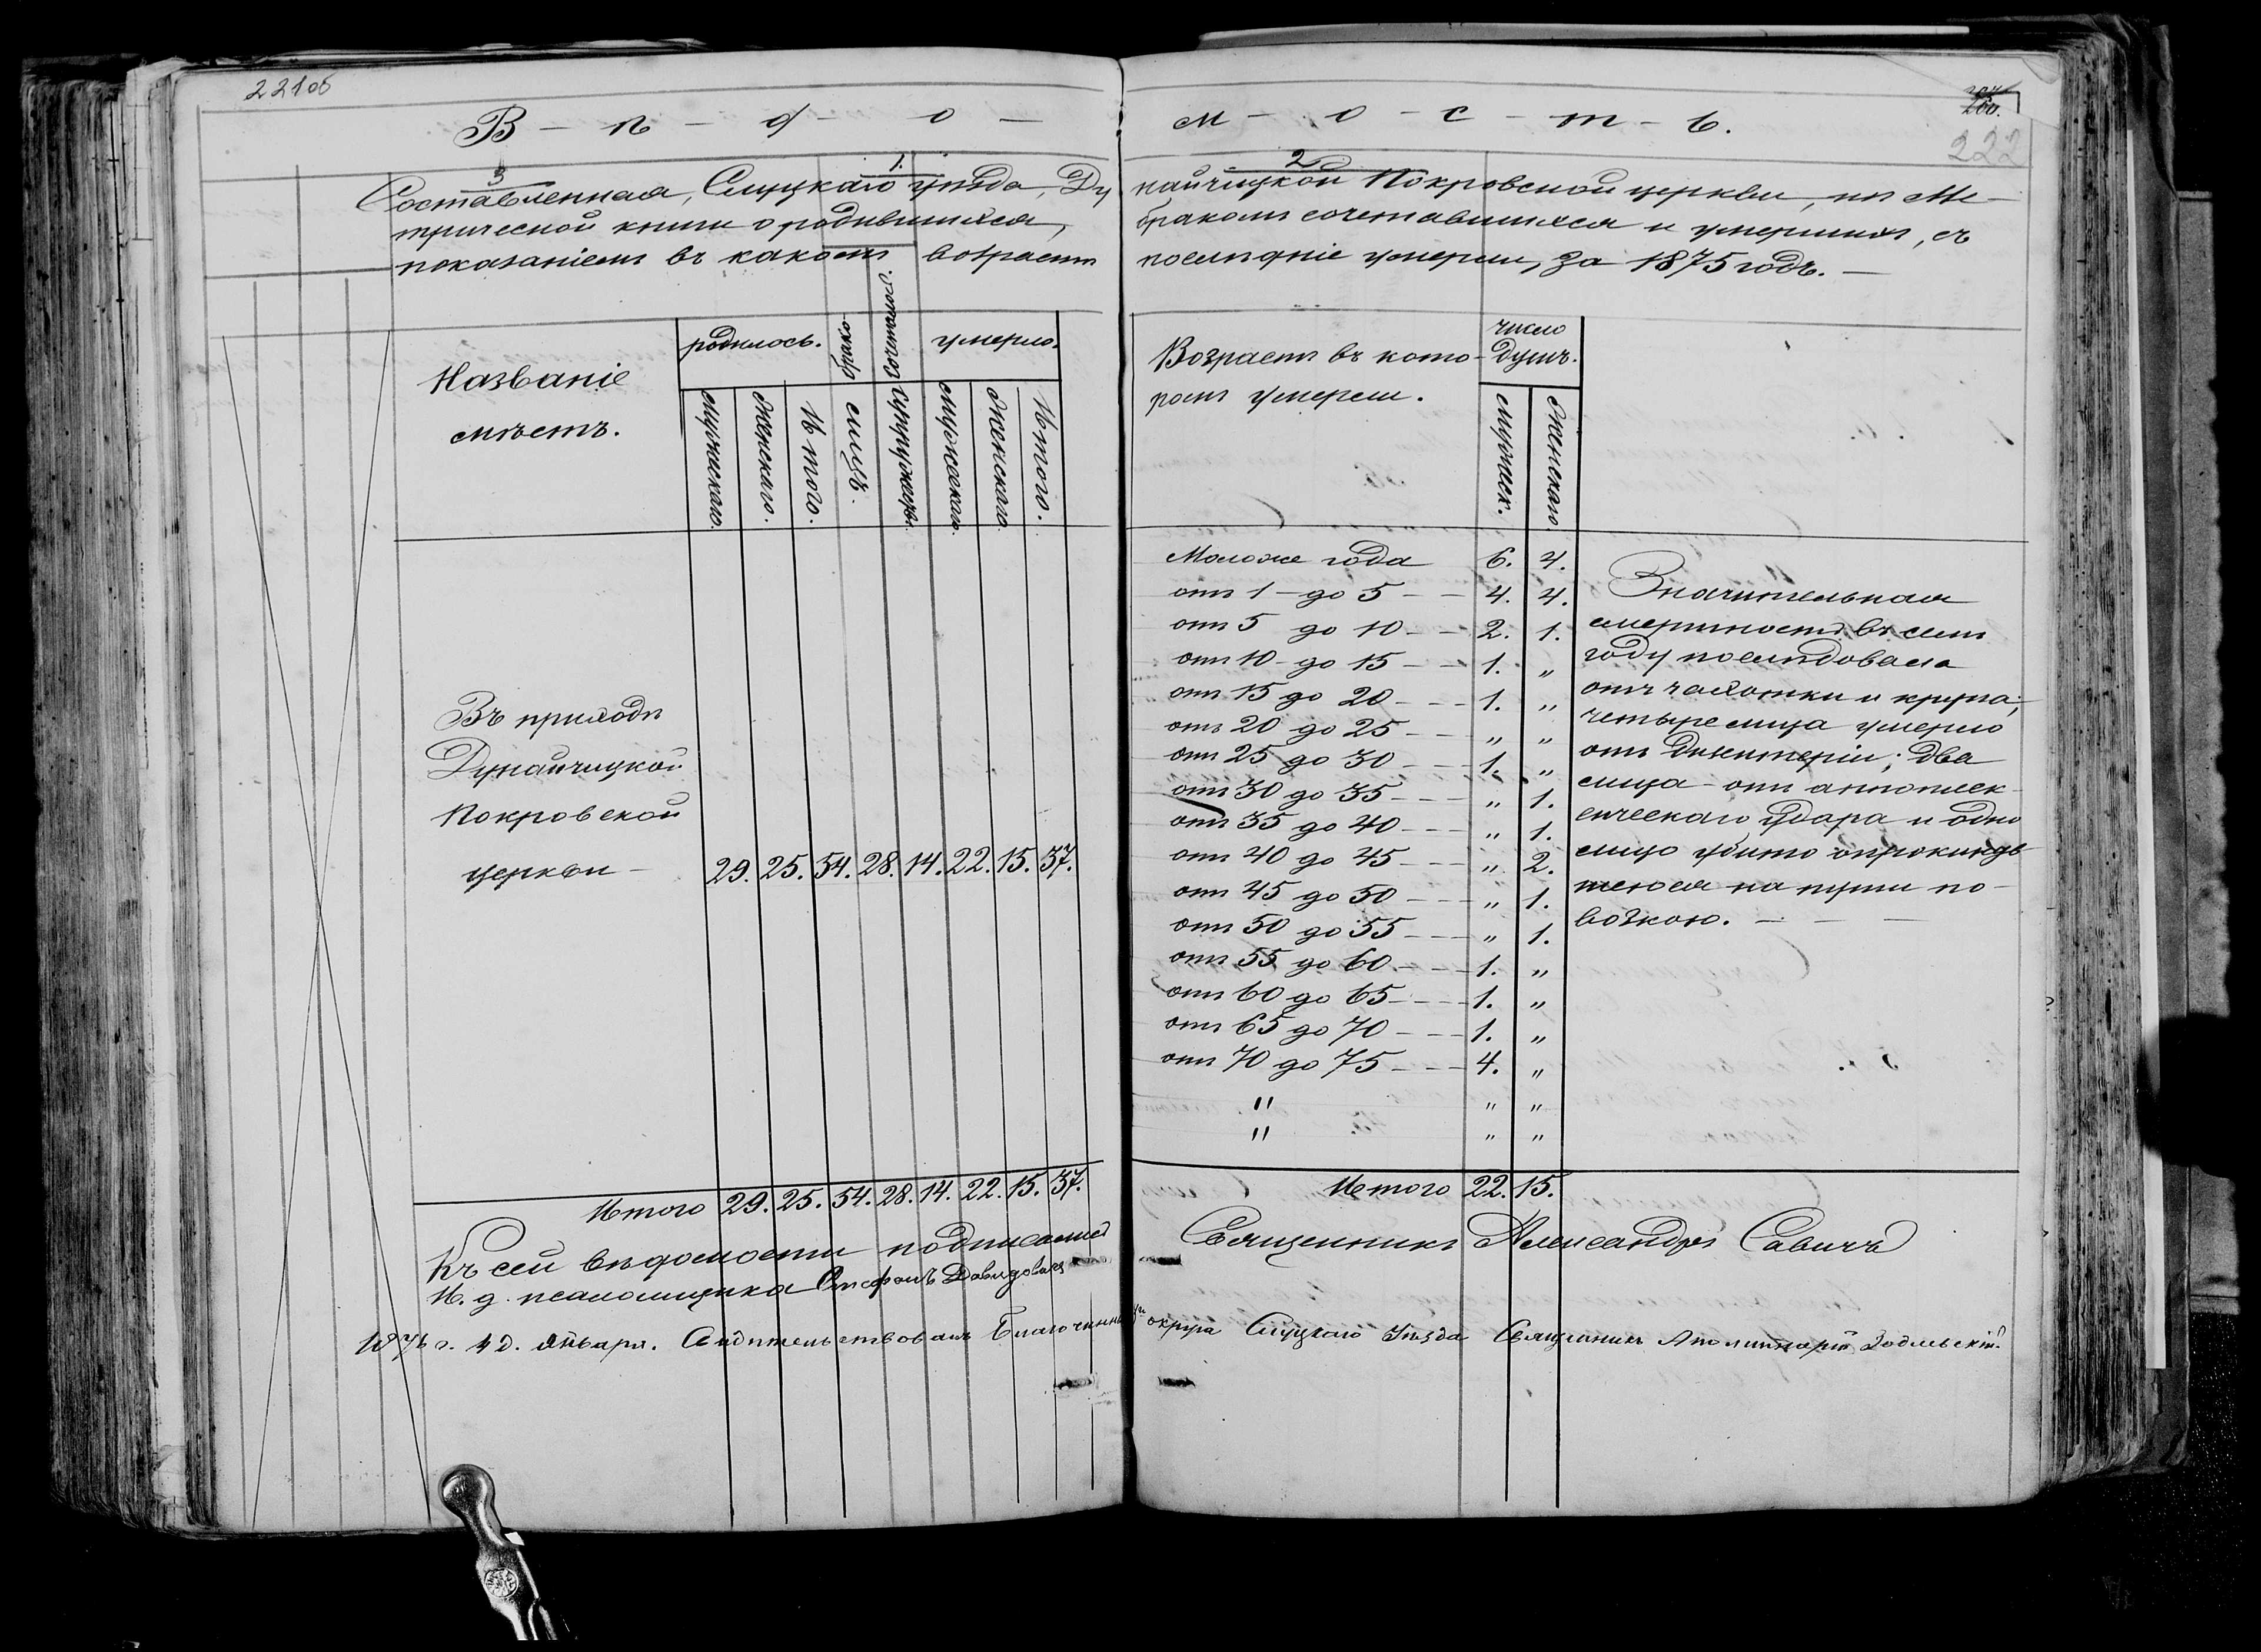 221об
В – ѣ – д – о –
3
1.
Составленная, Слуцкаго уѣзда, Ду
трической книги о родившихся,
показаніемъ въ какомъ возрастѣ
Названіе
мѣстъ.
родилось.
брако-
сочтавш.
умерло.
мужескаго.
женскаго.
Итого.
лицъ.
супружествъ.
мужескаго.
женскаго.
Итого.
Въ приходѣ
Дунайчицкой
Покровской
церкви – 29. 25. 54. 28. 14. 22. 15. 37.
Итого 29. 25. 54. 28. 14. 22. 15. 37.
Къ сей вѣдомости подписался
И. д. псаломщика Стефанъ Давидовичъ
м – о – с – т – ь.
200.
222
2
найчицкой Покровской церкви, по Ме–
бракомъ сочетавшихся и умершихъ, съ
послѣдніе умерли, за 1875 годъ. –
Возрастъ въ кото–
ромъ умерли.
число
душъ.
мужеск.
женскаго.
Моложе года 6. 4.
отъ 1 – до 5 – – 4. 4.
отъ 5 до 10 – – 2. 1.
отъ 10 – до 15 – – 1. „
отъ 15 до 20 – – – 1. „
отъ 20 до 25 – – „ „
отъ 25 до 30 – – 1. „
отъ 30 до 35 – – – „ 1.
отъ 35 до 40 – – – „ 1.
отъ 40 до 45 – – – „ 2.
отъ 45 до 50 – – – „ 1.
отъ 50 до 55 – – – „ 1.
отъ 55 до 60 – – – 1. „
отъ 60 до 65 – – – 1. „
отъ 65 до 70 – – – 1. „
отъ 70 до 75 – – – 4. „
" „ „
" „ „
Итого 22. 15.
Значительная
смертность въ семъ
году послѣдовала
отъ чахотки и крупа;
четыре лица умерло
отъ диѣнтеріи; два
лица – отъ апоплек–
сическаго удара и одно
лицо убито опрокинув
шеюся на пути по–
возкою. – – –
Священникъ Александръ Савичъ
1876 г. 4 д. Января. Свидѣтельствовалъ Благочинный округа Слуцкаго Уѣзда Священникъ Аполинарій